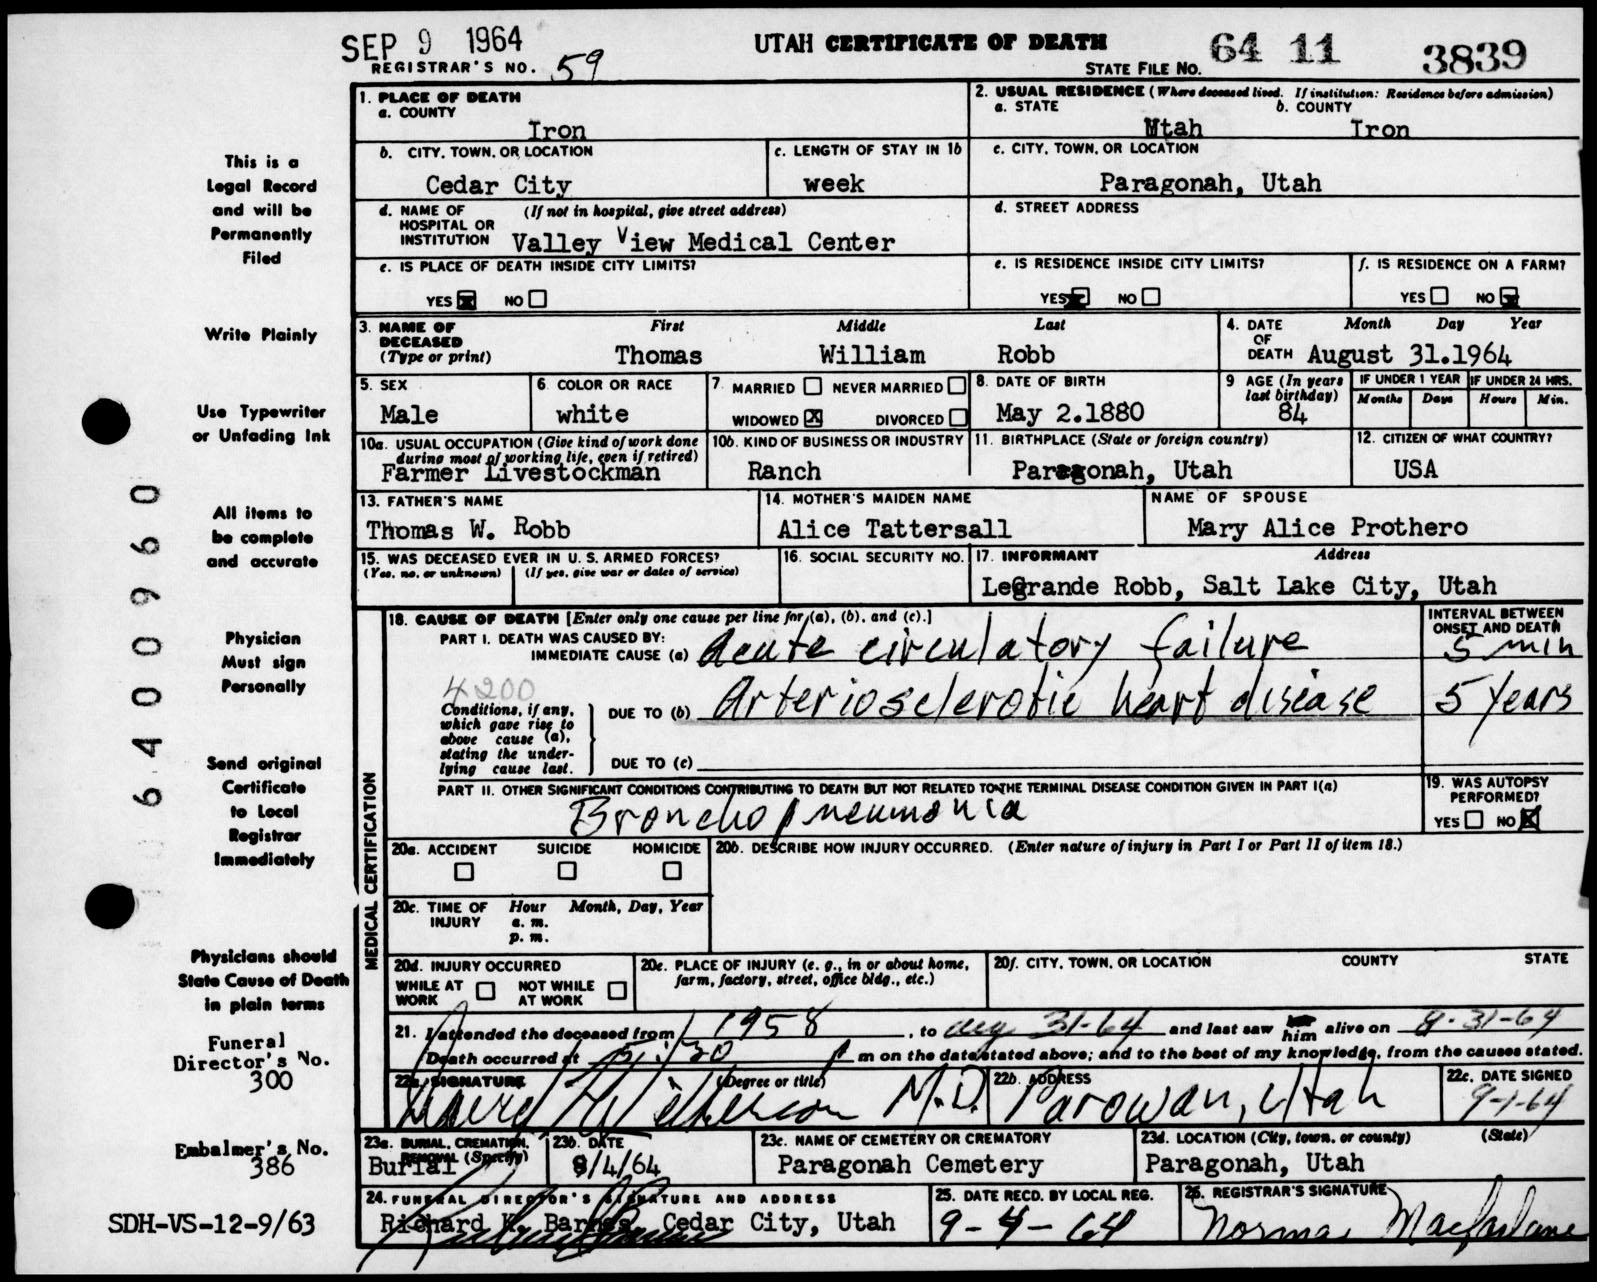 SEP 9 1964
REGISTRAR'S NO. 59
UTAH CERTIFICATE OF DEATH
STATE FILE NO. 64 11 3839
1. PLACE OF DEATH
a. COUNTY
Iron
2. USUAL RESIDENCE (Where deceased lived. If institution: Residence before admission)
a. STATE b. COUNTY
Utah Iron
b. CITY, TOWN, OR LOCATION
Cedar City
c. LENGTH OF STAY IN 1b
week
c. CITY, TOWN, OR LOCATION
Paragonah, Utah
d. NAME OF (If not in hospital, give street address)
HOSPITAL OR
INSTITUTION Valley View Medical Center
d. STREET ADDRESS
e. IS PLACE OF DEATH INSIDE CITY LIMITS?
YES NO
e. IS RESIDENCE INSIDE CITY LIMITS?
YES NO
f. IS RESIDENCE ON A FARM?
YES NO
3. NAME OF DECEASED First Middle Last
(Type or print) Thomas William Robb
4. DATE OF DEATH Month Day Year
August 31.1964
5. SEX
Male
6. COLOR OR RACE
white
7. MARRIED NEVER MARRIED
WIDOWED X DIVORCED
8. DATE OF BIRTH
May 2.1880
9 AGE (In years last birthday)
84
IF UNDER 1 YEAR IF UNDER 24 HRS.
Months Days Hours Min.
10a. USUAL OCCUPATION (Give kind of work done
during most of working life, even if retired)
Farmer Livestockman
10b. KIND OF BUSINESS OR INDUSTRY
Ranch
11. BIRTHPLACE (State or foreign country)
Paragonah, Utah
12. CITIZEN OF WHAT COUNTRY?
USA
13. FATHER'S NAME
Thomas W. Robb
14. MOTHER'S MAIDEN NAME
Alice Tattersall
NAME OF SPOUSE
Mary Alice Prothero
15. WAS DECEASED EVER IN U. S. ARMED FORCES?
(Yes, no, or unknown) (If yes, give war or dates of service)
16. SOCIAL SECURITY NO.
17. INFORMANT Address
LeGrande Robb, Salt Lake City, Utah
18. CAUSE OF DEATH [Enter only one cause per line for (a), (b), and (c).]
PART I. DEATH WAS CAUSED BY:
IMMEDIATE CAUSE (a) Acute circulatory failure
INTERVAL BETWEEN
ONSET AND DEATH
5 min
4200
Conditions, if any,
which gave rise to
above cause (a),
stating the under-
lying cause last.
DUE TO (b) Arteriosclerotic heart disease
5 years
DUE TO (c)
PART II. OTHER SIGNIFICANT CONDITIONS CONTRIBUTING TO DEATH BUT NOT RELATED TO THE TERMINAL DISEASE CONDITION GIVEN IN PART I(a)
Bronchopneumonia
19. WAS AUTOPSY
PERFORMED?
YES NO X
MEDICAL CERTIFICATION
20a. ACCIDENT SUICIDE HOMICIDE
20b. DESCRIBE HOW INJURY OCCURRED. (Enter nature of injury in Part I or Part II of item 18.)
20c. TIME OF INJURY Hour Month, Day, Year
a. m.
p. m.
20d. INJURY OCCURRED
WHILE AT WORK NOT WHILE AT WORK
20e. PLACE OF INJURY (e. g., in or about home,
farm, factory, street, office bldg., etc.)
20f. CITY, TOWN, OR LOCATION COUNTY STATE
21. I attended the deceased from 1958, to Aug 31-64 and last saw him alive on 8-31-64
Death occurred at 5:30 p m on the date stated above; and to the best of my knowledge, from the causes stated.
22a. SIGNATURE (Degree or title)
M.D.
22b. ADDRESS
Parowan, Utah
22c. DATE SIGNED
9-1-64
23a. BURIAL, CREMATION,
REMOVAL (Specify)
Burial
23b. DATE
9/4/64
23c. NAME OF CEMETERY OR CREMATORY
Paragonah Cemetery
23d. LOCATION (City, town, or county) (State)
Paragonah, Utah
24. FUNERAL DIRECTOR'S SIGNATURE AND ADDRESS
Richard H. Barnes, Cedar City, Utah
25. DATE RECD. BY LOCAL REG.
9-4-64
26. REGISTRAR'S SIGNATURE
Norma Macfarlane
This is a
Legal Record
and will be
Permanently
Filed
Write Plainly
Use Typewriter
or Unfading Ink
All items to
be complete
and accurate
Physician
Must sign
Personally
Send original
Certificate
to Local
Registrar
Immediately
Physicians should
State Cause of Death
in plain terms
Funeral
Director's No.
300
Embalmer's No.
386
SDH-VS-12-9/63
6400960